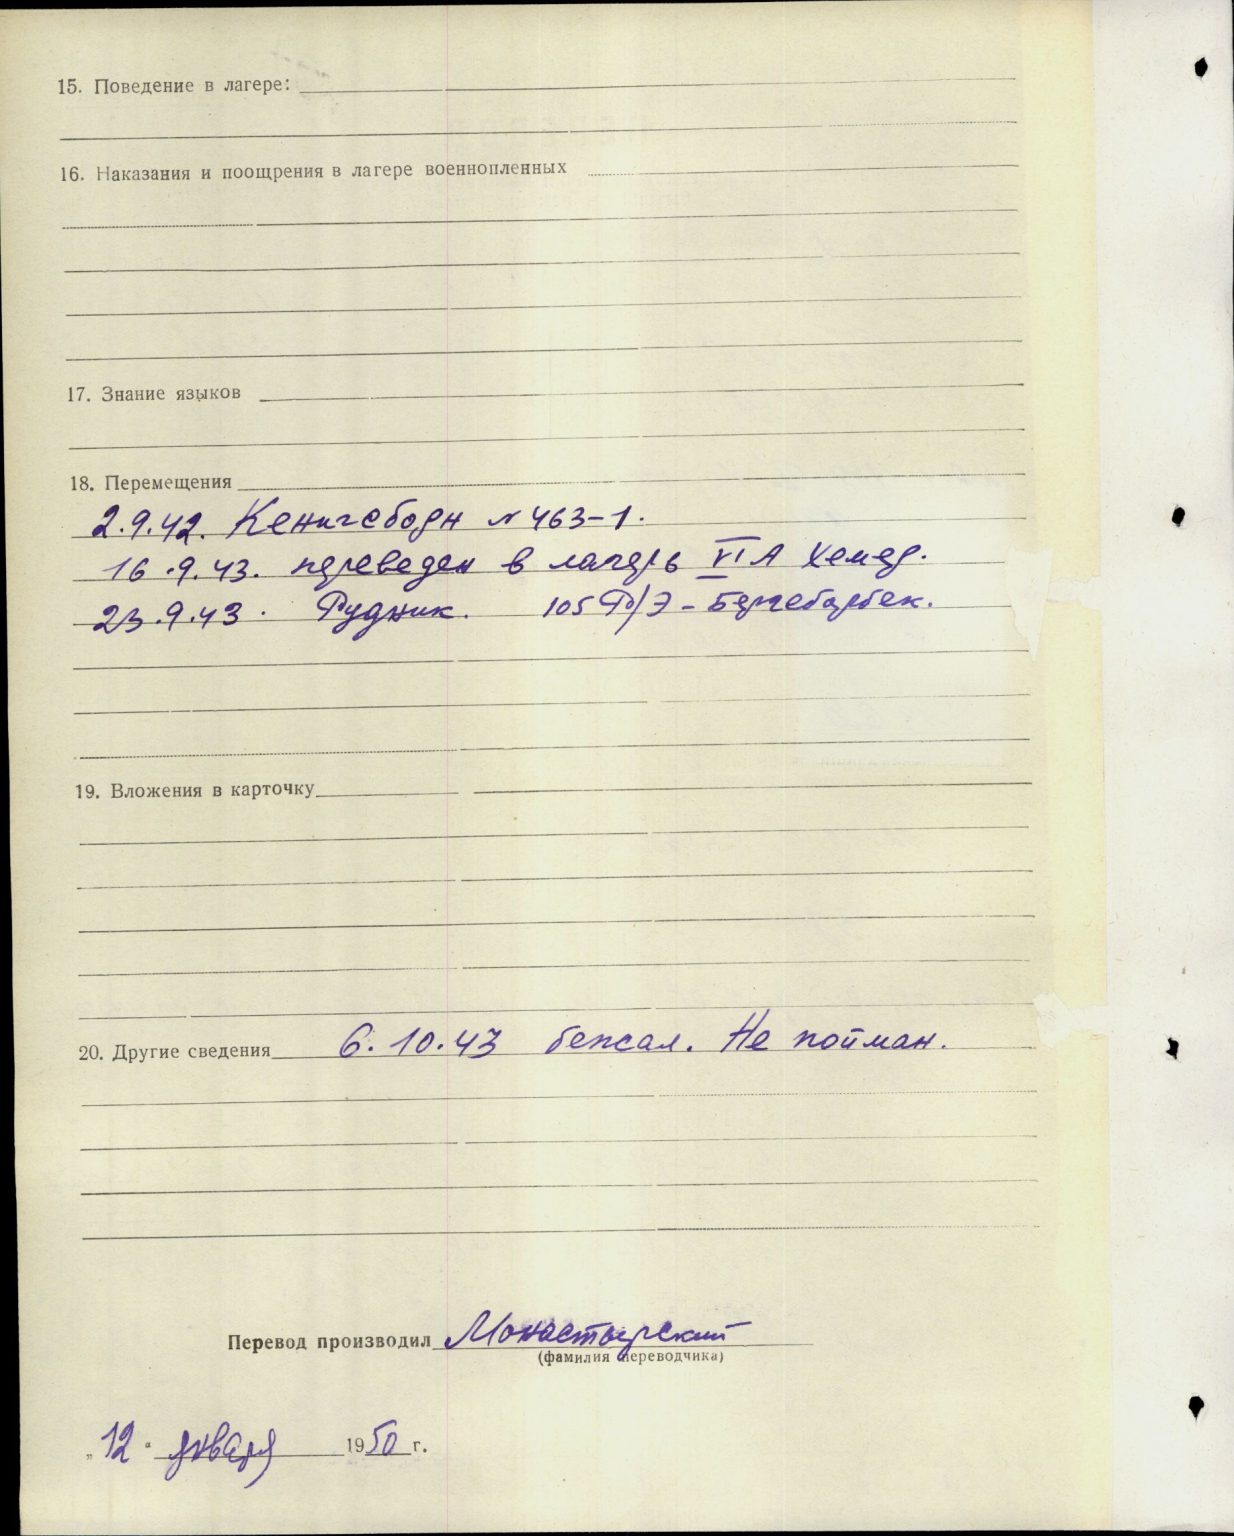 15. Поведение в лагере:
16. Наказания и поощрения в лагере военнопленных
17. Знание языков
18. Перемещения
2.9.42. Кенигсборн № 463-1.
16.9.43. переведен в лагерь VI А Хемер.
23.9.43. Рудник. 105 Р/Э - Бергеборбек.
19. Вложения в карточку
20. Другие сведения 6.10.43 бежал. Не пойман.
Перевод производил Монастырский
(фамилия переводчика)
„12“ января 1950 г.